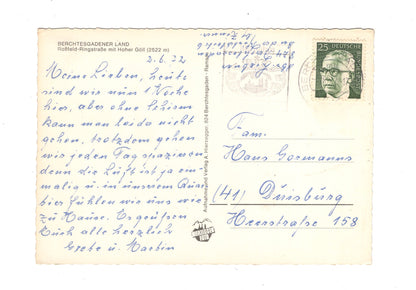 BERCHTESGADENER LAND
Roßfeld-Ringstraße mit Hoher Göll (2522 m)
2. 6. 72
Meine Lieben, heute
sind wir nun 1 Woche
hier, aber ohne Schirm
kann man leider nicht
gehen, trotzdem gehen
wir jeden Tag spazieren
denn die Luft ist ja ein-
malig u. in unserem Quar-
tier fühlen wie uns wie
zu Hause. Es grüßen
Euch alle herzlich
Grete u. Martin
25
DEUTSCHE
Fam.
Hans Gormanns
(41) Duisburg
Heerstraße 158